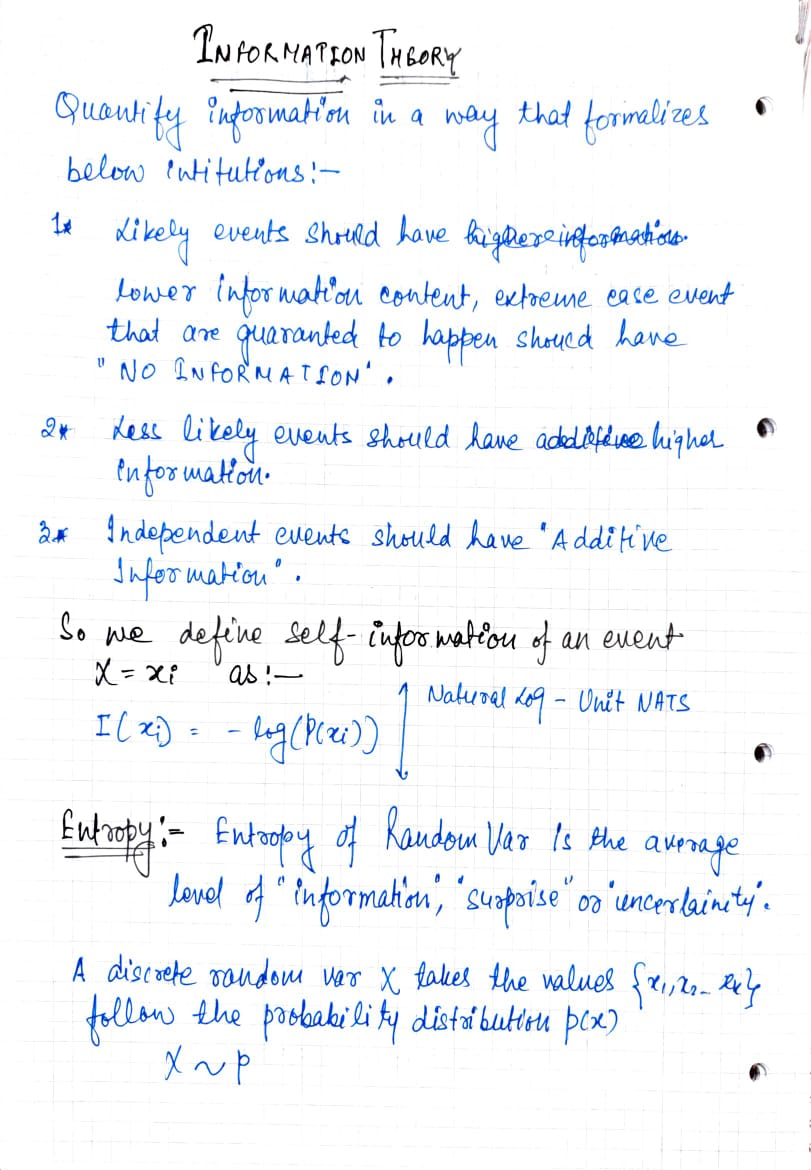 INFORMATION THEORY
Quantify information in a way that formalizes
below intitutions:-
1* Likely events should have higher information.
lower information content, extreme case event
that are guaranted to happen should have
"NO INFORMATION".
2* Less likely events should have additive higher
information.
3* Independent events should have "Additive
Information".
So we define self-information of an event
X = xi as:-
Natural Log - Unit NATS
I(xi) = - log(P(xi))
Entropy:- Entropy of Random Var Is the average
level of "information", "surprise" or "uncertainity".
A discrete random var X takes the values {x1, x2 - xk}
follow the probability distribution p(x)
X ~ p